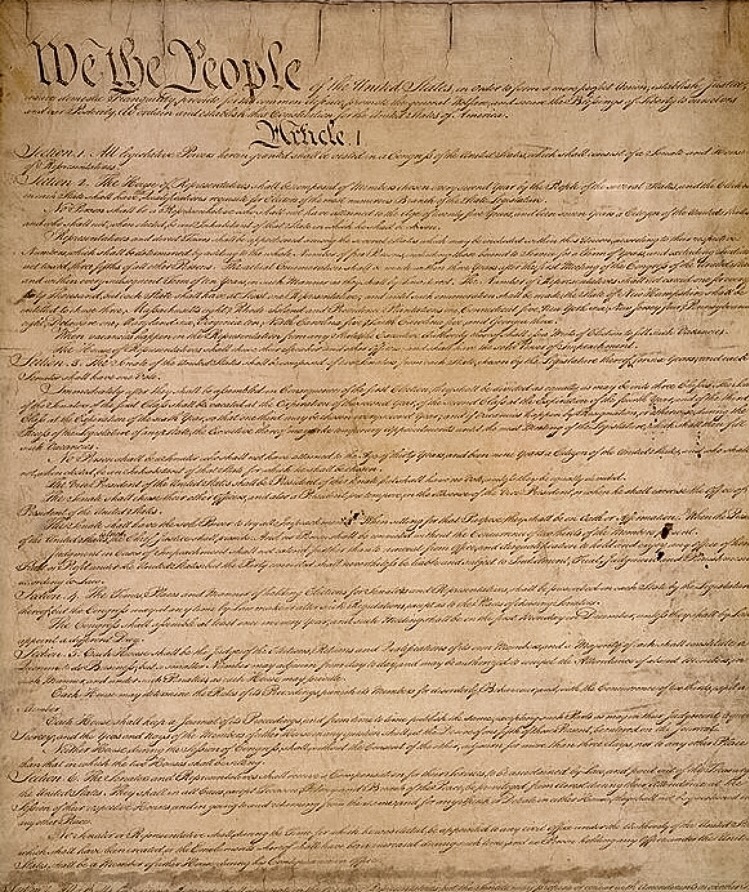 We the People of the United States, in Order to form a more perfect Union, establish Justice,
insure domestic Tranquility, provide for the common defence, promote the general Welfare, and secure the Blessings of Liberty to ourselves
and our Posterity, do ordain and establish this Constitution for the United States of America.
Article. I
Section. 1. All legislative Powers herein granted shall be vested in a Congress of the United States, which shall consist of a Senate and House
of Representatives.
Section. 2. The House of Representatives shall be composed of Members chosen every second Year by the People of the several States, and the Electors
in each State shall have Qualifications requisite for Electors of the most numerous Branch of the State Legislature.
No Person shall be a Representative who shall not have attained to the Age of twenty five Years, and been seven Years a Citizen of the United States,
and who shall not, when elected, be an Inhabitant of that State in which he shall be chosen.
Representatives and direct Taxes shall be apportioned among the several States which may be included within this Union, according to their respective
Numbers, which shall be determined by adding to the whole Number of free Persons, including those bound to Service for a Term of Years, and excluding Indians
not taxed, three fifths of all other Persons. The actual Enumeration shall be made within three Years after the first Meeting of the Congress of the United States,
and within every subsequent Term of ten Years, in such Manner as they shall by Law direct. The Number of Representatives shall not exceed one for every
thirty Thousand, but each State shall have at Least one Representative; and until such enumeration shall be made, the State of New Hampshire shall be
entitled to chuse three, Massachusetts eight, Rhode-Island and Providence Plantations one, Connecticut five, New-York six, New Jersey four, Pennsylvania
eight, Delaware one, Maryland six, Virginia ten, North Carolina five, South Carolina five, and Georgia three.
When vacancies happen in the Representation from any State, the Executive Authority thereof shall issue Writs of Election to fill such Vacancies.
The House of Representatives shall chuse their Speaker and other Officers; and shall have the sole Power of Impeachment.
Section. 3. The Senate of the United States shall be composed of two Senators from each State, chosen by the Legislature thereof, for six Years; and each
Senator shall have one Vote.
Immediately after they shall be assembled in Consequence of the first Election, they shall be divided as equally as may be into three Classes. The Seats
of the Senators of the first Class shall be vacated at the Expiration of the second Year, of the second Class at the Expiration of the fourth Year, and of the third
Class at the Expiration of the sixth Year, so that one third may be chosen every second Year; and if Vacancies happen by Resignation, or otherwise, during the
Recess of the Legislature of any State, the Executive thereof may make temporary Appointments until the next Meeting of the Legislature, which shall then fill
such Vacancies.
No Person shall be a Senator who shall not have attained to the Age of thirty Years, and been nine Years a Citizen of the United States, and who shall
not, when elected, be an Inhabitant of that State for which he shall be chosen.
The Vice President of the United States shall be President of the Senate, but shall have no Vote, unless they be equally divided.
The Senate shall chuse their other Officers, and also a President pro tempore, in the Absence of the Vice President, or when he shall exercise the Office of
President of the United States.
The Senate shall have the sole Power to try all Impeachments. When sitting for that Purpose, they shall be on Oath or Affirmation. When the President
of the United States is tried, the Chief Justice shall preside: And no Person shall be convicted without the Concurrence of two thirds of the Members present.
Judgment in Cases of Impeachment shall not extend further than to removal from Office, and disqualification to hold and enjoy any Office of honor,
Trust or Profit under the United States: but the Party convicted shall nevertheless be liable and subject to Indictment, Trial, Judgment and Punishment,
according to Law.
Section. 4. The Times, Places and Manner of holding Elections for Senators and Representatives, shall be prescribed in each State by the Legislature
thereof; but the Congress may at any time by Law make or alter such Regulations, except as to the Places of chusing Senators.
The Congress shall assemble at least once in every Year, and such Meeting shall be on the first Monday in December, unless they shall by Law
appoint a different Day.
Section. 5. Each House shall be the Judge of the Elections, Returns and Qualifications of its own Members, and a Majority of each shall constitute a
Quorum to do Business; but a smaller Number may adjourn from day to day, and may be authorized to compel the Attendance of absent Members, in
such Manner, and under such Penalties as each House may provide.
Each House may determine the Rules of its Proceedings, punish its Members for disorderly Behaviour, and, with the Concurrence of two thirds, expel a
Member.
Each House shall keep a Journal of its Proceedings, and from time to time publish the same, excepting such Parts as may in their Judgment require
Secrecy; and the Yeas and Nays of the Members of either House on any question shall, at the Desire of one fifth of those Present, be entered on the Journal.
Neither House, during the Session of Congress, shall, without the Consent of the other, adjourn for more than three days, nor to any other Place
than that in which the two Houses shall be sitting.
Section. 6. The Senators and Representatives shall receive a Compensation for their Services, to be ascertained by Law, and paid out of the Treasury
of the United States. They shall in all Cases, except Treason, Felony and Breach of the Peace, be privileged from Arrest during their Attendance at the
Session of their respective Houses, and in going to and returning from the same; and for any Speech or Debate in either House, they shall not be questioned in
any other Place.
No Senator or Representative shall, during the Time for which he was elected, be appointed to any civil Office under the Authority of the United States,
which shall have been created, or the Emoluments whereof shall have been encreased during such time; and no Person holding any Office under the United
States, shall be a Member of either House during his Continuance in Office.